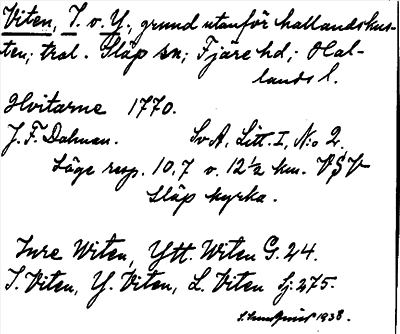 Viten, I. o. Y., grund utanför hallandskus-
ten; trol. Släp sn; Fjäre hd; Hal-
lands l.
Hvitarne 1770.
J. F. Dalman. Sv A, Litt. I, N:o 2.
Läge resp. 10,7 o. 12 1/2 km. VSV
Släp kyrka.
Inre Witen, Ytt. Witen G. 24.
I. Viten, Y. Viten, L. Viten Sj. 275.
1938.